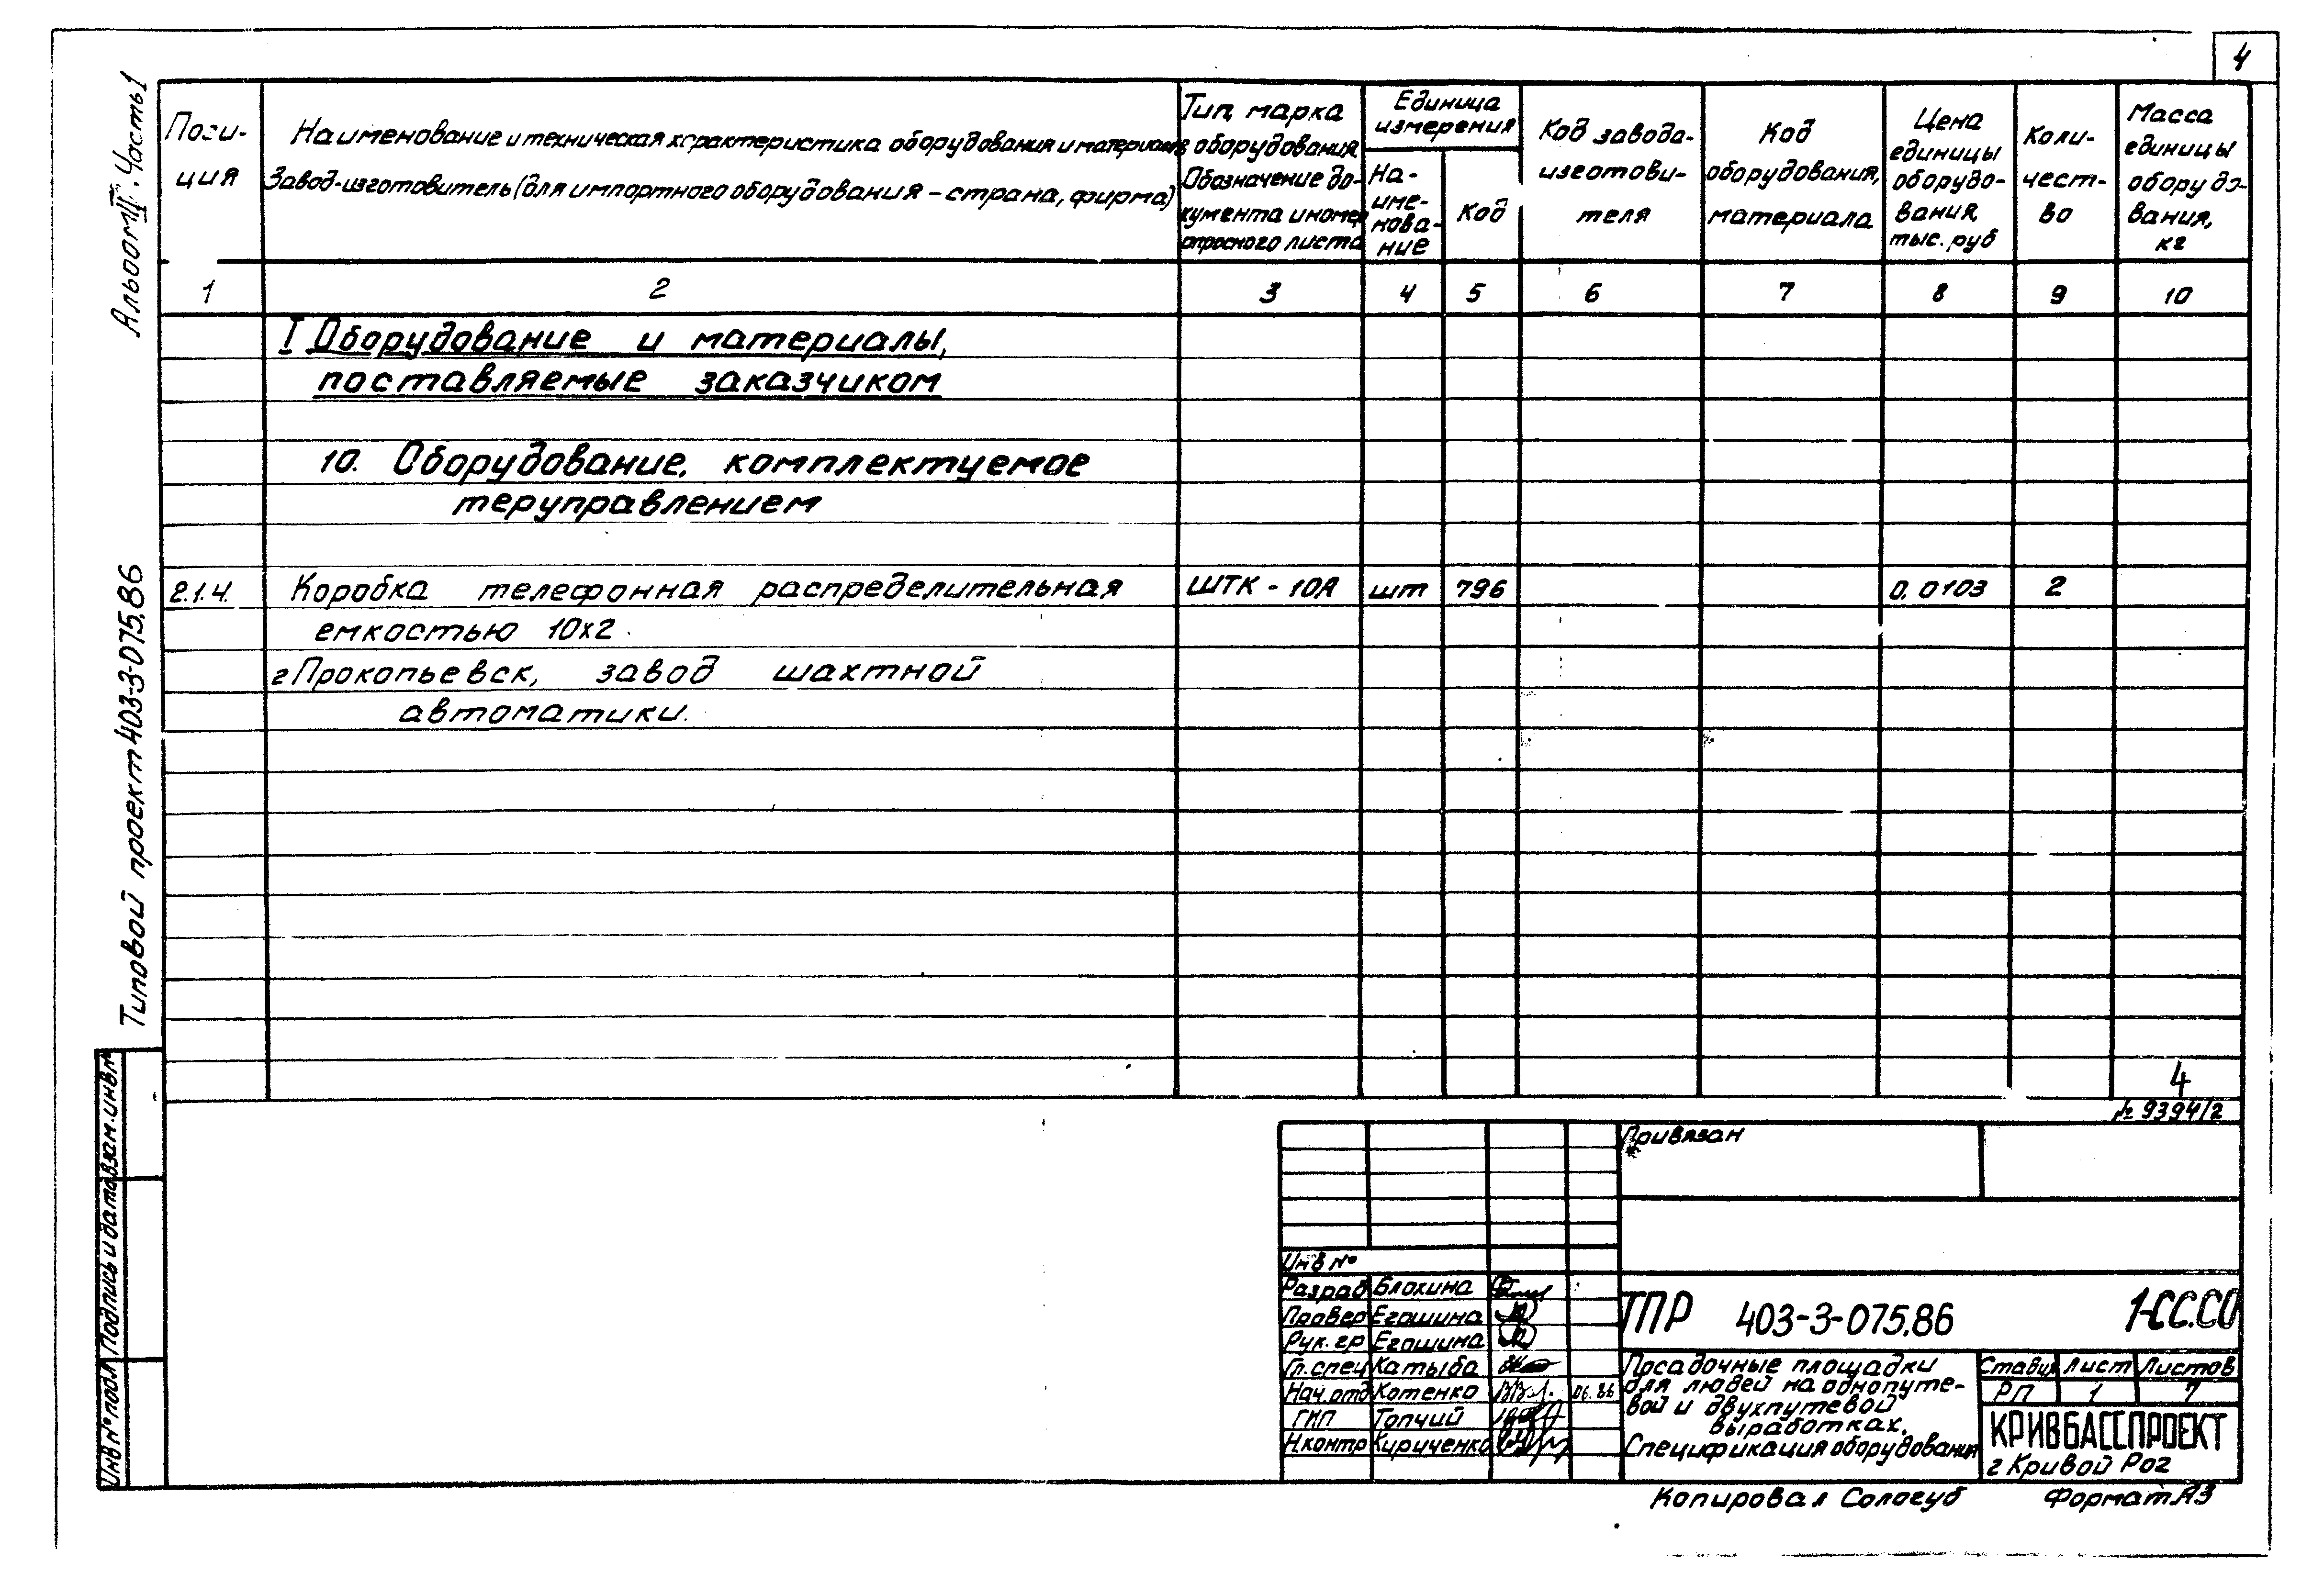 4
Альбом II. Часть 1
Типовой проект 403-3-075.86
Пози-
ция
Наименование и техническая характеристика оборудования и материалов
Завод-изготовитель (для импортного оборудования – страна, фирма)
Тип, марка
оборудования
Обозначение до-
кумента и номер
опросного листа
Единица
измерения
На-
име-
нова-
ние
Код
Код завода-
изготови-
теля
Код
оборудования,
материала
Цена
единицы
оборудо-
вания
тыс. руб
Коли-
чест-
во
Масса
единицы
оборудо-
вания,
кг
1 2 3 4 5 6 7 8 9 10
I Оборудование и материалы,
поставляемые заказчиком
10. Оборудование, комплектуемое
теруправлением
2.1.4. Коробка телефонная распределительная ШТК - 10А шт 796 0.0103 2
емкостью 10х2.
г Прокопьевск, завод шахтной
автоматики.
4
№ 9394/2
Взам. инв №
Подпись и дата
Инв № подл
Привязан
Инв №
Разраб Блохина
Провер Егошина
Рук. гр Егошина
Гл. спец Катыба
Нач. отд Котенко 06.86
ГИП Топчий
Н.контр Кириченко
ТПР 403-3-075.86 1-СС.СО
Посадочные площадки
для людей на однопуте-
вой и двухпутевой
выработках.
Спецификация оборудования
Стадия Лист Листов
РП 1 7
КРИВБАССПРОЕКТ
г Кривой Рог
Копировал Сологуб Формат А3